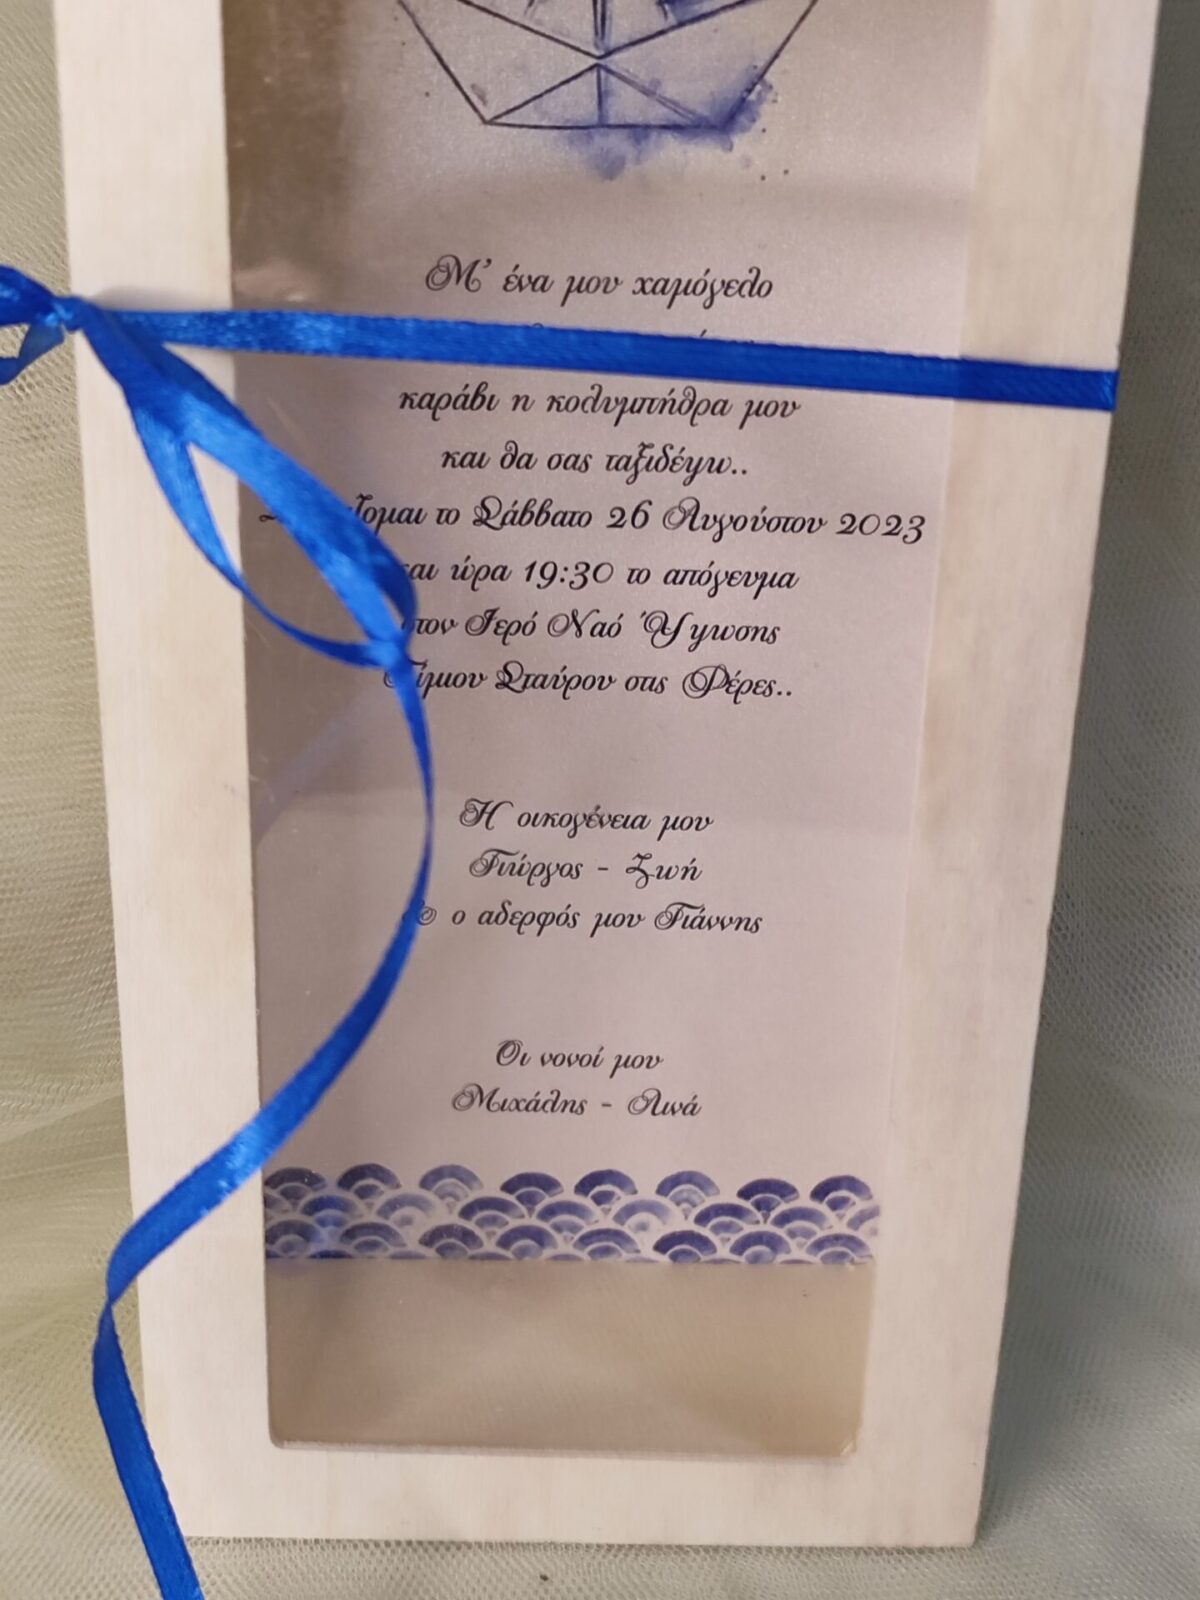 Μ' ένα μου χαμόγελο
καράβι η κολυμπήθρα μου
και θα σας ταξιδέψω..
το Σάββατο 26 Αυγούστου 2023
και ώρα 19:30 το απόγευμα
στον Ιερό Ναό Ύψωσης
Τίμιου Σταύρου στις Φέρες..
Η οικογένεια μου
Γιώργος - Ζωή
& ο αδερφός μου Γιάννης
Οι νονοί μου
Μιχάλης - Λινά